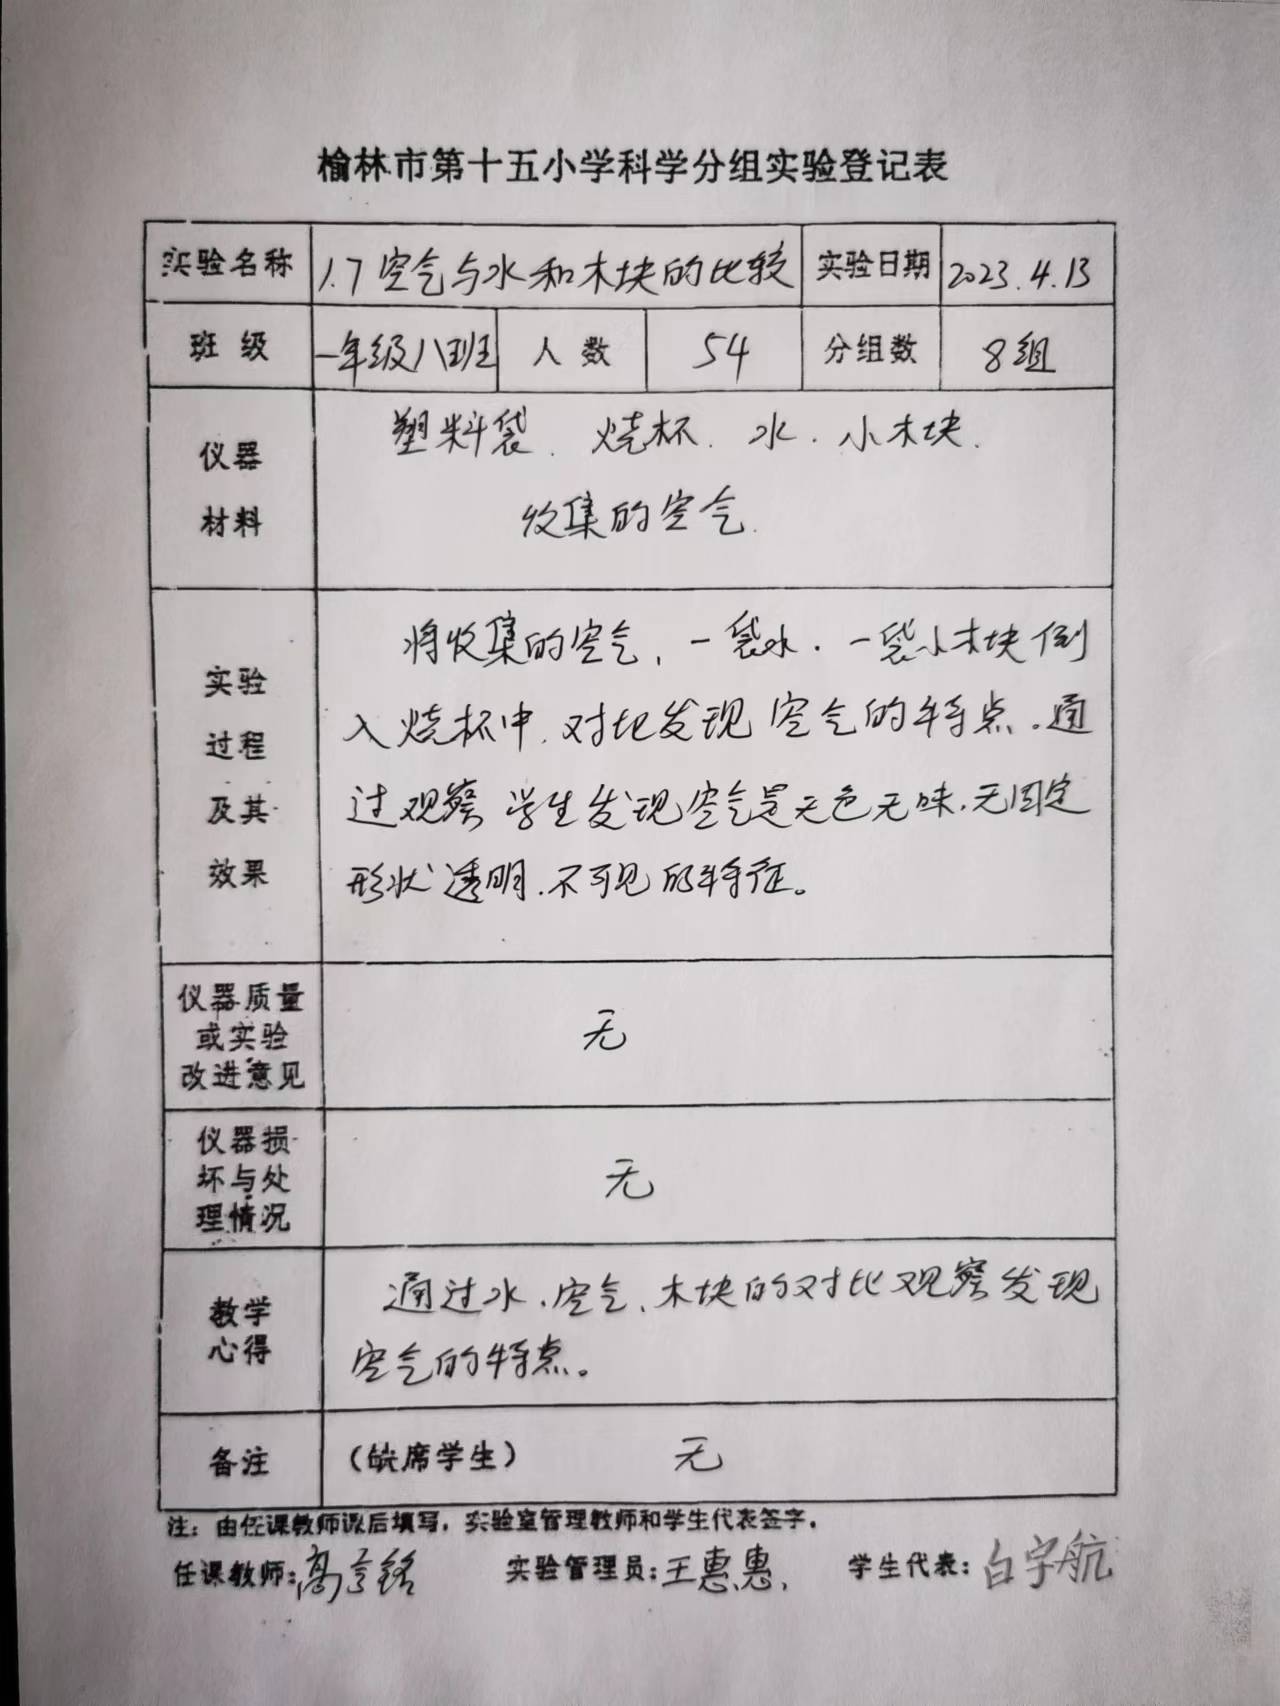 榆林市第十五小学科学分组实验登记表
实验名称 1.7 空气与水和木块的比较 实验日期 2023.4.13
班 级 一年级八班 人 数 54 分组数 8组
仪器
材料
塑料袋. 烧杯. 水. 小木块.
收集的空气.
实验
过程
及其
效果
将收集的空气, 一袋水. 一袋小木块倒
入烧杯中, 对比发现 空气的特点. 通
过观察 学生发现空气是无色无味. 无固定
形状 透明. 不可见的特征。
仪器质量
或实验
改进意见
无
仪器损
坏与处
理情况
无
教学
心得
通过水. 空气. 木块的对比观察发现
空气的特点。
备注 (缺席学生) 无
注: 由任课教师课后填写, 实验室管理教师和学生代表签字.
任课教师: 高言铭 实验管理员: 王惠惠. 学生代表: 白宇航